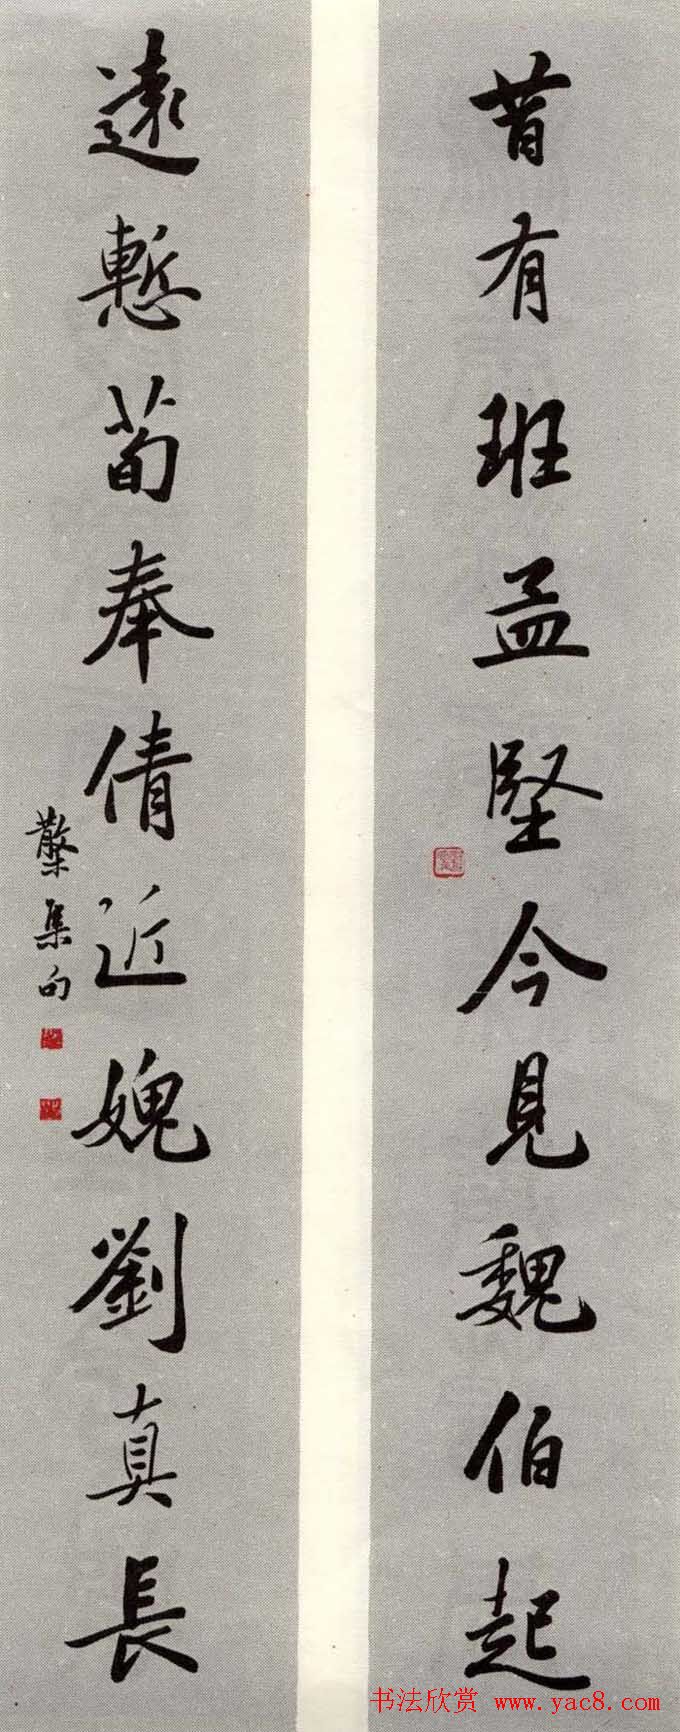 昔有班孟堅今見魏伯起
遠慙荀奉倩近媿劉真長
檠集句
书法欣赏 www.yac8.com